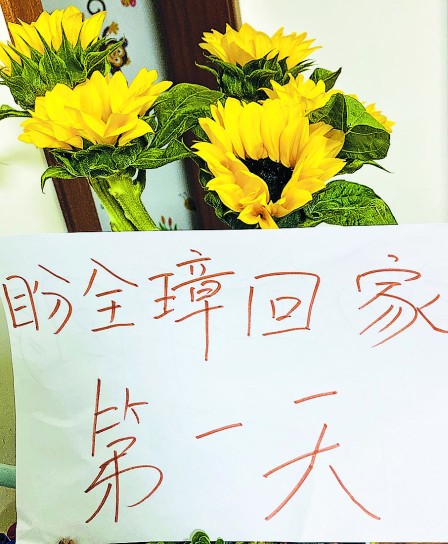 盼全璋回家
第一天